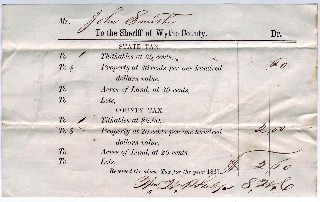 Mr. John Smith
To the Sheriff of Wythe County. Dr.
STATE TAX
To 1 Tithables at cents,
To $ Property at 30 cents per one hundred
dollars value.
To Acres of Land, at 30 cents,
To Lots,
COUNTY TAX
To 1 Tithables at $2.00,
To $ Property at 20 cents per one hundred 2,00
dollars value.
To Acres of Land, at 20 cents,
To Lots,
Received the above Tax for the year $ 2